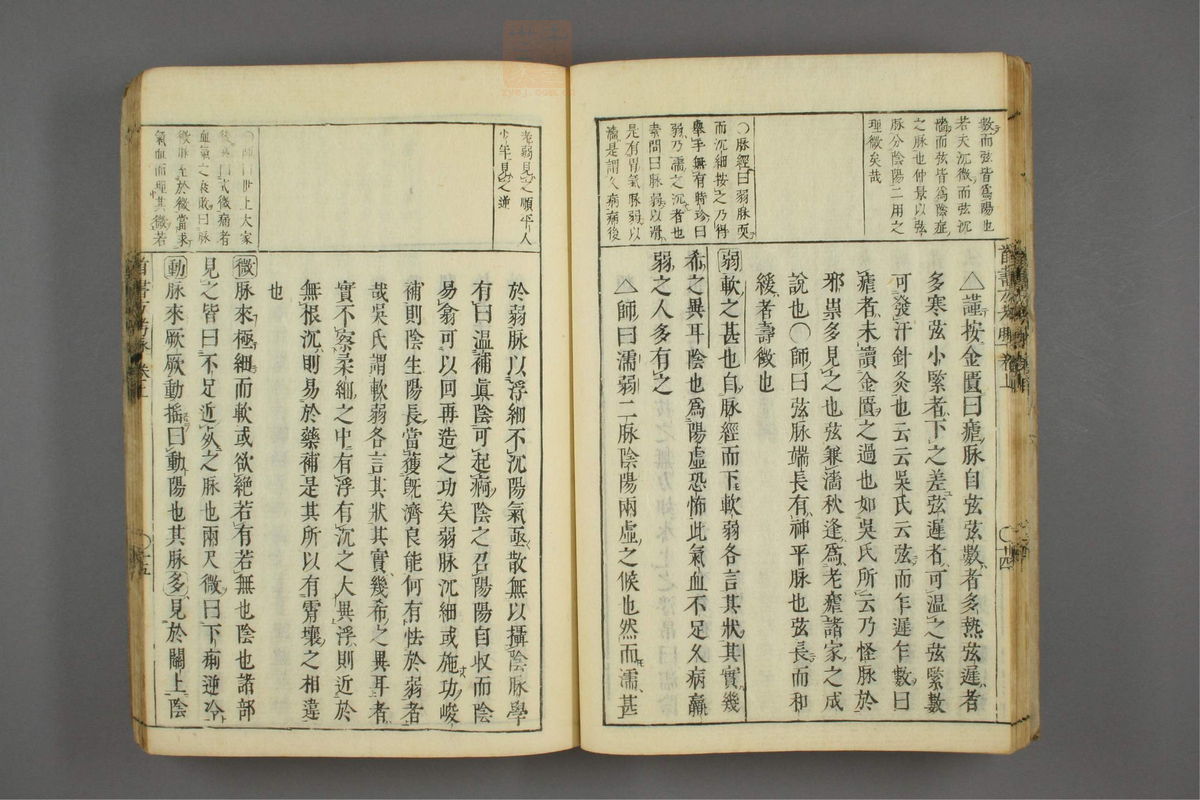 數而弦皆爲陽也
若夫沉微而弦沉
濇而弦皆爲陰症
之脉也仲景以弦
脉分陰陽二用之
理微矣哉
○脉經曰弱脉耎
而沉細按之乃得
舉手無有時珍曰
弱乃濡之沉者也
素問曰脉弱以滑
是有胃氣脉弱以
濇是謂久病病後
△謹按金匱曰瘧脉自弦弦數者多熱弦遲者
多寒弦小緊者下之差弦遲者可温之弦緊數
可發汗針灸也云云吳氏云弦而乍遲乍數曰
瘧者未讀金匱之過也如吳氏所云乃怪脉於
邪祟多見之也弦兼濇秋逢爲老瘧諸家之成
說也○師曰弦脉端長有神平脉也弦長而和
緩者壽徵也
弱軟之甚也自脉經而下軟弱各言其狀其實幾
希之異耳陰也爲陽虛恐怖此氣血不足久病羸
弱之人多有之
△師曰濡弱二脉陰陽兩虛之候也然而濡甚
老弱見之順平人
少年見之逆
○師曰世上大家
微脉至於微當求
氣血而理其微若
於弱脉以浮細不沉陽氣亟散無以攝陰脉學
有曰温補眞陰可起痾陰之召陽陽自收而陰
易翕可以回再造之功矣弱脉沉細或施功峻
補則陰生陽長當獲旣濟良能何有怯於弱者
哉吳氏謂軟弱各言其狀其實幾希之異耳者
實不察柔細之中有浮有沉之大異浮則近於
無根沉則易於藥補是其所以有霄壤之相違
也
微脉來極細而軟或欲絕若有若無也陰也諸部
見之皆曰不足近死之脉也兩尺微曰下痢逆冷
動脉來厥厥動搖曰動陽也其脉多見於關上陰